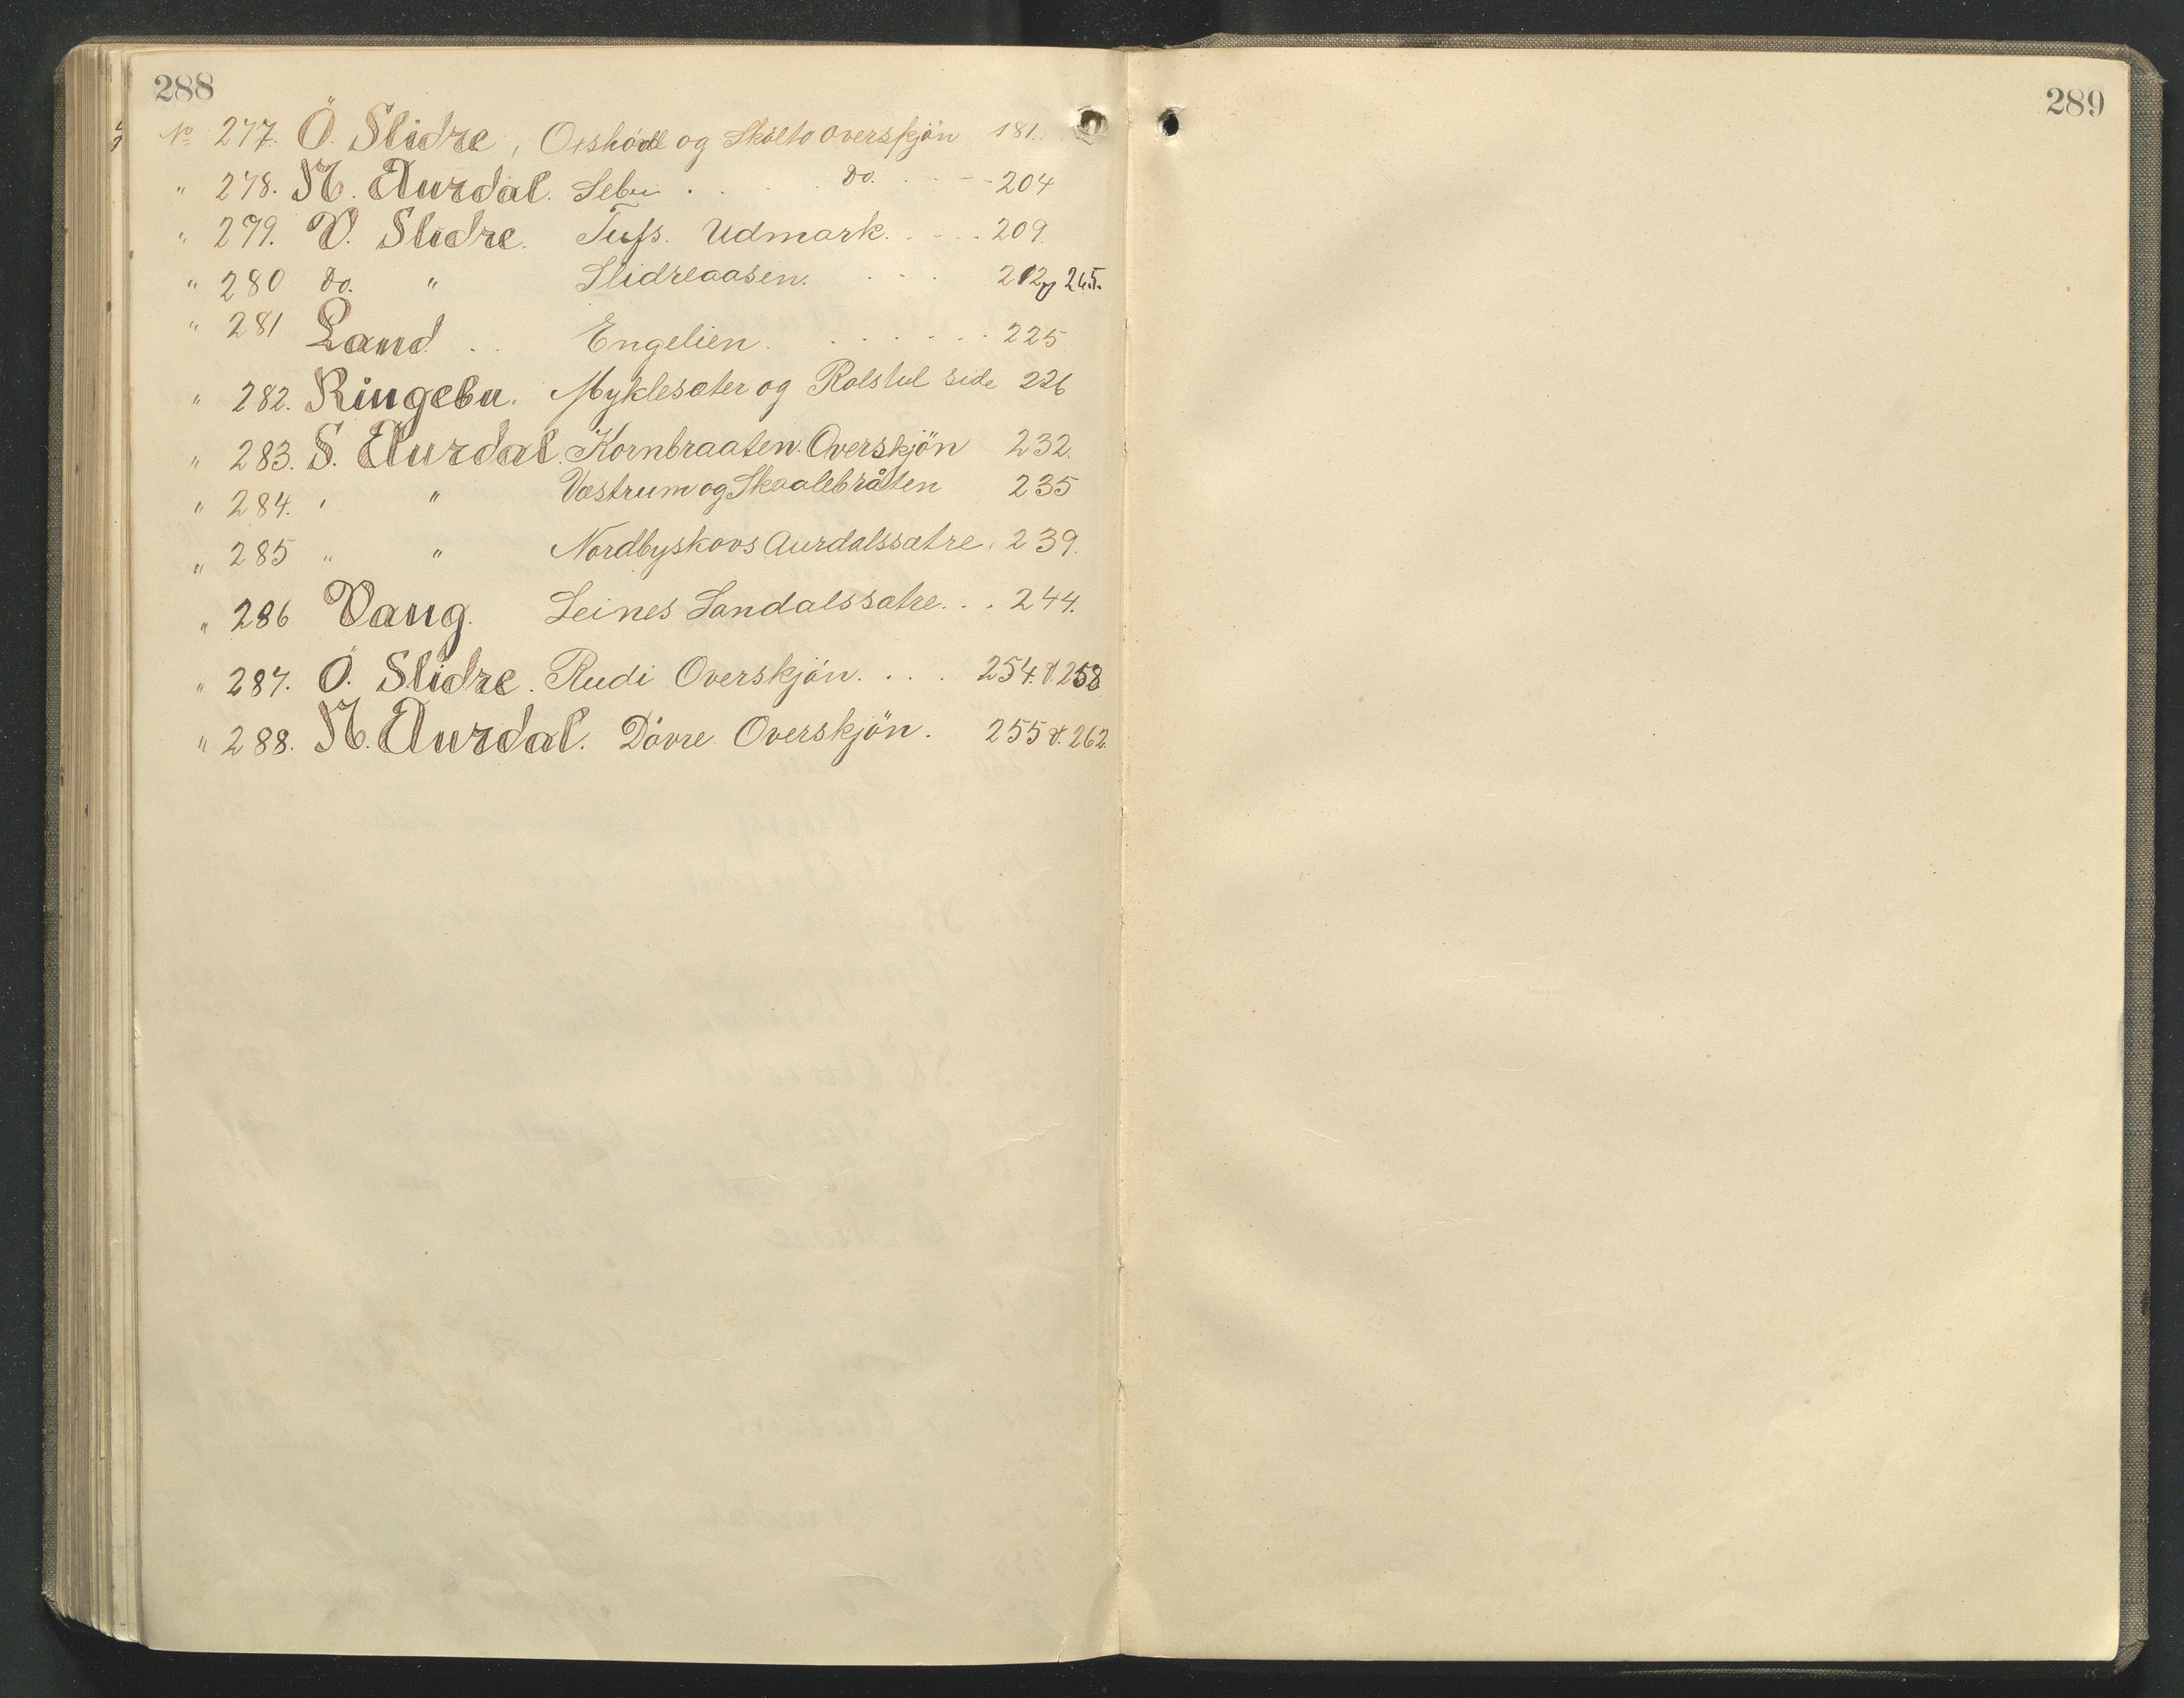 288
No 277. Ö. Slidre, og Skölto Overskjön 181.
" 278. N. Aurdal. Sebu . . . . do. . . . 204
" 279. V. Slidre. Tufs. Udmark. . . . . 209.
" 280 do. " Slidreaasen. . . . 212 og 265.
" 281 Land . . Engelien. . . . . . . . 225
" 282. Ringebu. Myklesæter og Rolstul side 226
" 283. S. Aurdal. Kornbraaten. Overskjön 232.
" 284. " " Væstrum og Skaalebråten 235
" 285 " " Nordbyskovs Aurdalssætre. 239.
" 286 Vang. Leines Sandalssætre. . . 244.
" 287. Ö. Slidre. Rudi Overskjön. . . . 254. & 258
" 288. N. Aurdal. Dövre Overskjön. 255 & 262.
289